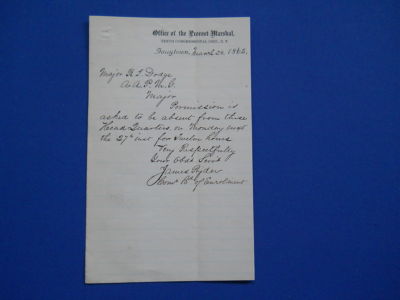 Office of the Provost Marshal,
TENTH CONGRESSIONAL DIST., N. Y.
Tarrytown, March 24, 1865.
Major
A. A. P. M. G.
Major
Permission is
asked to be absent from these
Head Quarters, on Monday next
the 27th inst for Twelve hours
Very Respectfully
Your Obdt Servt
James Ryder
Comr Bd of Enrolment